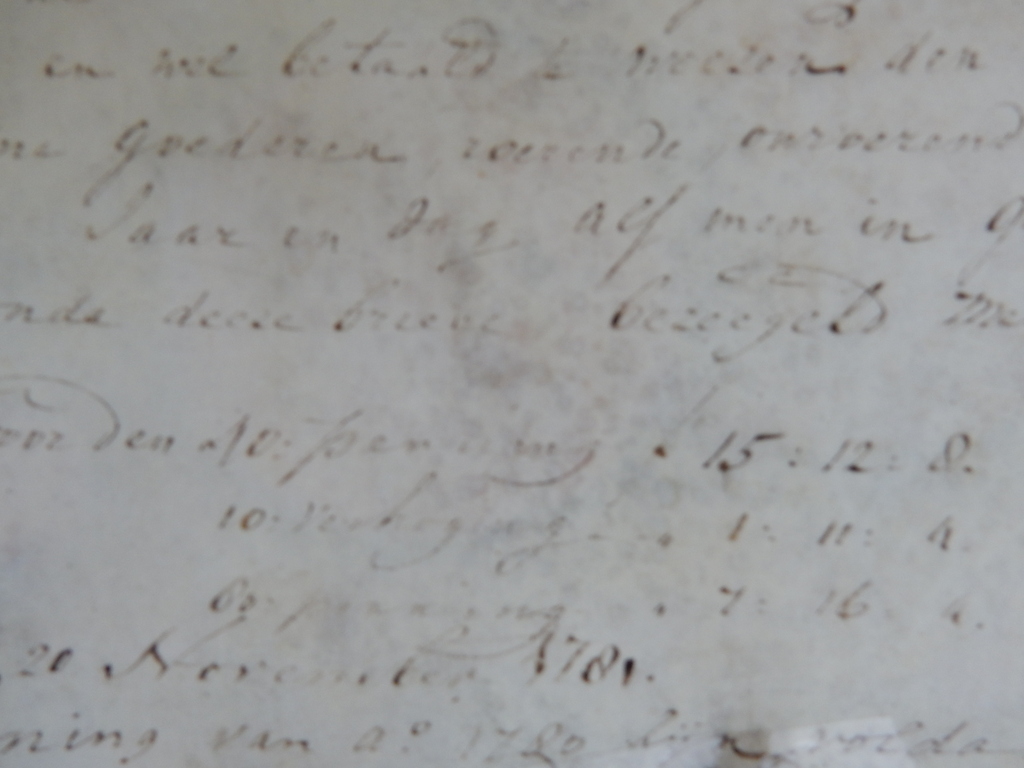 en wel betaald te weezen den
goederen roerende onroerend
Jaar en dag Alf men in
deese brieve bezeegeld me
voor den 40: penning 15: 12: 8.
10: verhoging 1: 11: 4.
80: penning 7: 16: 4.
20 November 1781.
ning van ao 1780 zijn volda